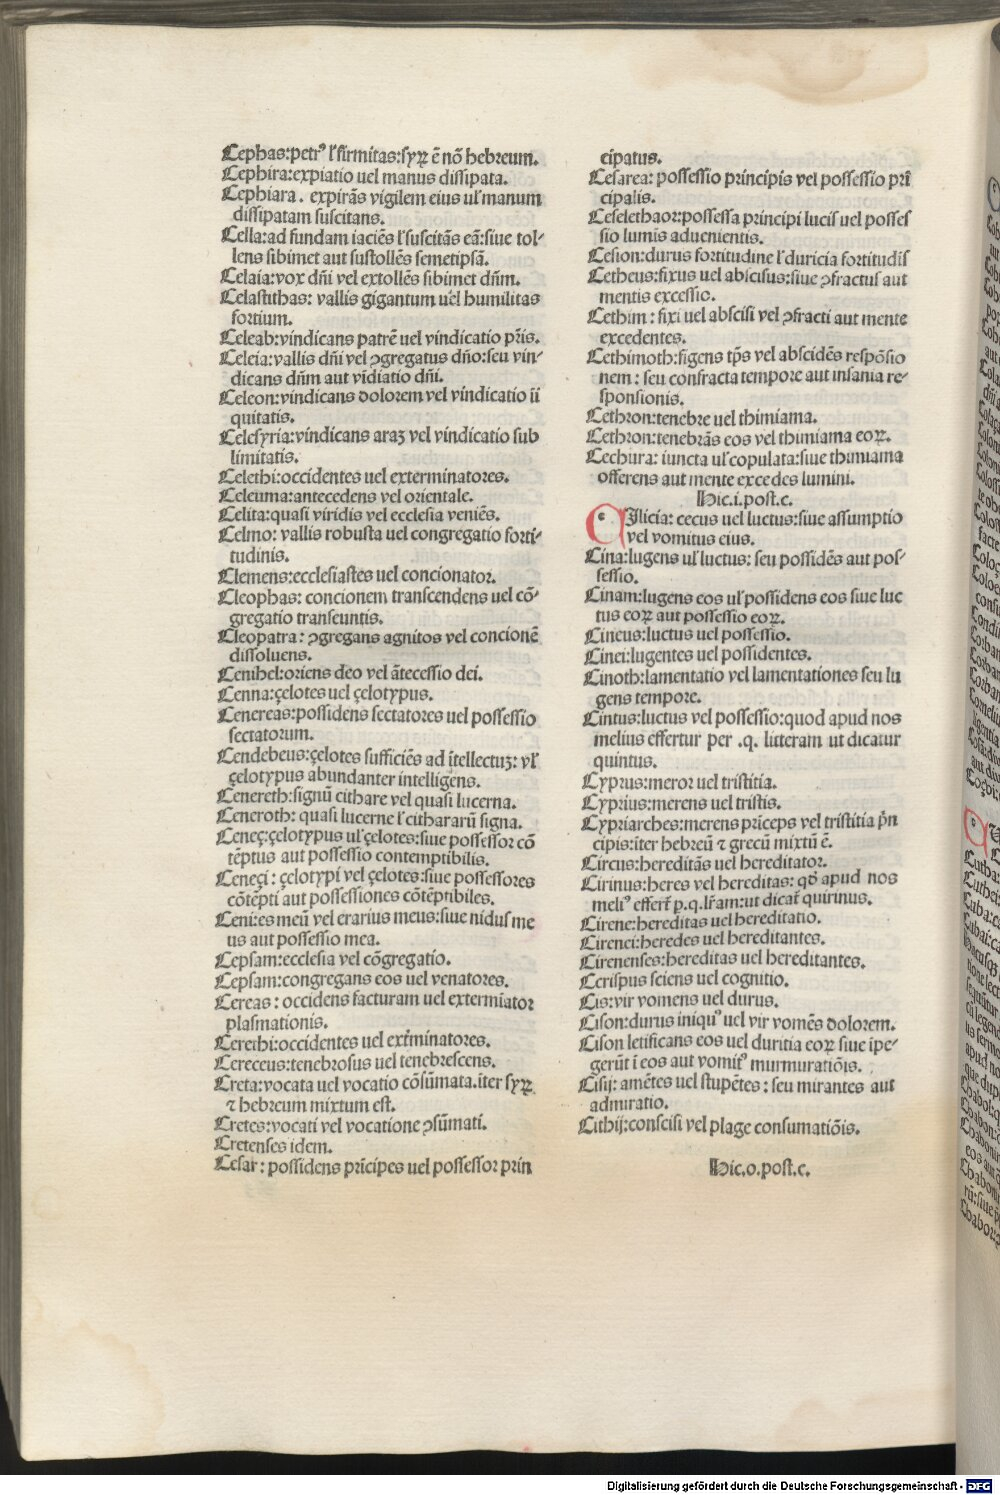 Cephas:petrꝰ ł firmitas:syrꝝ ē nō hebreum.
Cephira:expiatio uel manus dissipata.
Cephiara . expirās vigilem eius uł manum
dissipatam suscitans.
Cella:ad fundam iaciēs ł suscitās eā:siue tol-
lens sibimet aut sustollēs semetipsā.
Celaia:vox dñi vel extollēs sibimet dñm.
Celastithas: vallis gigantum uel humilitas
fortium.
Celeab:vindicans patrē uel vindicatio pr̄is.
Celeia:vallis dñi vel ꝯgregatus dño:seu vin-
dicans dñm aut vīdiatio dñi.
Celeon:vindicans dolorem vel vindicatio ii
quitatis.
Celesyria:vindicans araꝫ vel vindicatio sub
limitatis.
Celethi:occidentes uel exterminatores.
Celeuma:antecedens vel orientale.
Celita:quasi viridis vel ecclesia veniēs.
Celmo: vallis robusta uel congregatio forti-
tudinis.
Clemens:ecclesiastes uel concionator.
Cleophas: concionem transcendens uel cō-
gregatio transeuntis.
Cleopatra: ꝯgregans agnitos vel concionē
dissoluens.
Cenihel:oriens deo vel ātecessio dei.
Cenna:çelotes uel çelotypus.
Cenereas:possidens sectatores uel possessio
sectatorum.
Cendebeus:çelotes sufficiēs ad ītellectuꝫ: vł
çelotypus abundanter intelligens.
Cenereth:signū cithare vel quasi lucerna.
Ceneroth: quasi lucerne ł cithararū signa.
Ceneç:çelotypus uł çelotes:siue possessor cō
tēptus aut possessio contemptibilis.
Ceneçi: çelotypi vel çelotes:siue possessores
cōtēpti aut possessiones cōtēptibiles.
Ceni:es meū vel erarius meus:siue nidus me
us aut possessio mea.
Cepsam:ecclesia vel cōgregatio.
Cepsam:congregans eos uel venatores.
Cereas: occidens facturam uel extermiator
plasmationis.
Cerethi:occidentes uel exťminatores.
Cereceus:tenebrosus uel tenebrescens.
Creta:vocata uel vocatio cōsūmata.iter syrꝝ
⁊ hebreum mixtum est.
Cretes:vocati vel vocatione ꝯsūmati.
Cretenses idem.
Cesar: possidens prīcipes uel possessor prin
cipatus.
Cesarea: possessio principis vel possessio prī
cipalis.
Ceselethaor:possessa principi lucis uel posses
sio lumis aduenientis.
Cesion:durus fortitudine ł duricia fortitudis
Cetheus:fixus uel abscisus:siue ꝯfractus aut
mentis excessio.
Cethim: fixi uel abscisi vel ꝯfracti aut mente
excedentes.
Cethimoth:figens tp̄s vel abscidēs respōsio
nem: seu confracta tempore aut insania re-
sponsionis.
Cethron:tenebre uel thimiama.
Cethron:tenebrās eos vel thimiama eoꝝ.
Cechura: iuncta uł copulata:siue thimiama
offerens aut mente excedes lumini.
Hic.i.post.c.
CIlicia: cecus uel luctus:siue assumptio
vel vomitus eius.
Cina:lugens uł luctus: seu possidēs aut pos-
sessio.
Cinam:lugens eos uł possidens eos siue luc
tus eoꝝ aut possessio eoꝝ.
Cineus:luctus uel possessio.
Cinei:lugentes uel possidentes.
Cinoth:lamentatio vel lamentationes seu lu
gens tempore.
Cintus:luctus vel possessio:quod apud nos
melius effertur per .q. litteram ut dicatur
quintus.
Cyprus:meror uel tristitia.
Cyprius:merens uel tristis.
Cypriarches:merens prīceps vel tristitia pn̄
cipis:iter hebreū ⁊ grecū mixtū ē.
Circus:hereditās uel hereditator.
Cirinus:heres vel hereditas: qď apud nos
meliꝰ effert̄ p.q.lr̄am:ut dicat̄ quirinus.
Cirene:hereditas uel hereditatio.
Cirenei:heredes uel hereditantes.
Cirenenses:hereditas uel hereditantes.
Cerispus sciens uel cognitio.
Cis:vir vomens uel durus.
Cison:durus iniquꝰ uel vir vomēs dolorem.
Cison letificans eos uel duritia eoꝝ siue īpe-
gerūt ī eos aut vomitꝰ murmuratiōis.
Cisij: amētes uel stupētes: seu mirantes aut
admiratio.
Cithij:conscisi vel plage consumatiōis.
Hic.o.post.c.
Digitalisierung gefördert durch die Deutsche Forschungsgemeinschaft - DFG